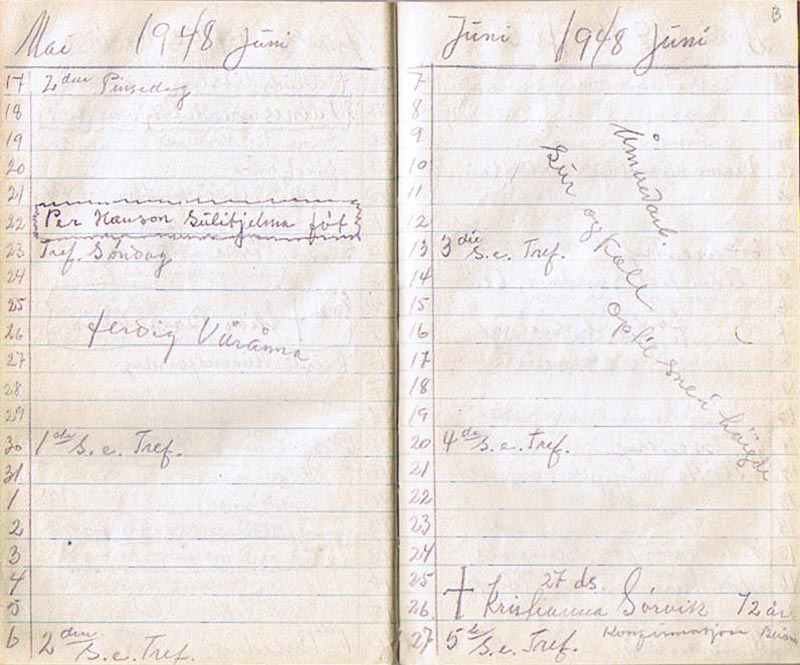 Mai 1948 Juni
17 2den Pinsedag
18
19
20
21
22 Per Hanson Sulitjelma føt
23 Tref. Søndag
24
25
26 ferdig Våråнna
27
28
29
30 1ste S. e. Tref.
31
1
2
3
4
5
6 2den S. e. Tref.
Juni 1948 Juni
B
7
8
9
10
11
12
13 3die S. e. Tref.
14
15
16
17
18
19
20 4de S. e. Tref.
21
22
23
24
25 27 ds.
26 † Kristianna Sørvik 72 år
27 5te S. e. Tref. Konfirmasjon
og kall